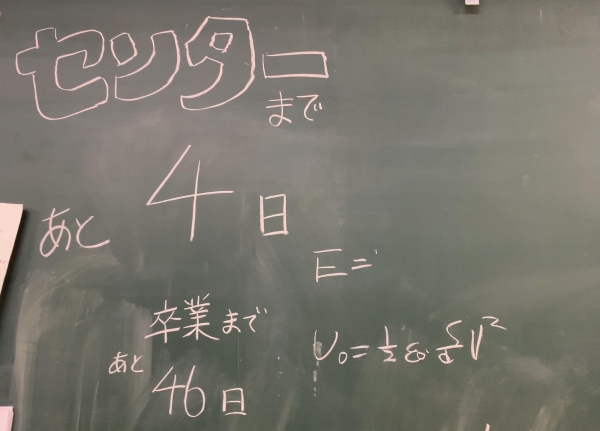 センター
まで
あと 4日
E=
卒業まで
あと 46日
U₀=½ε₀ S/d V²